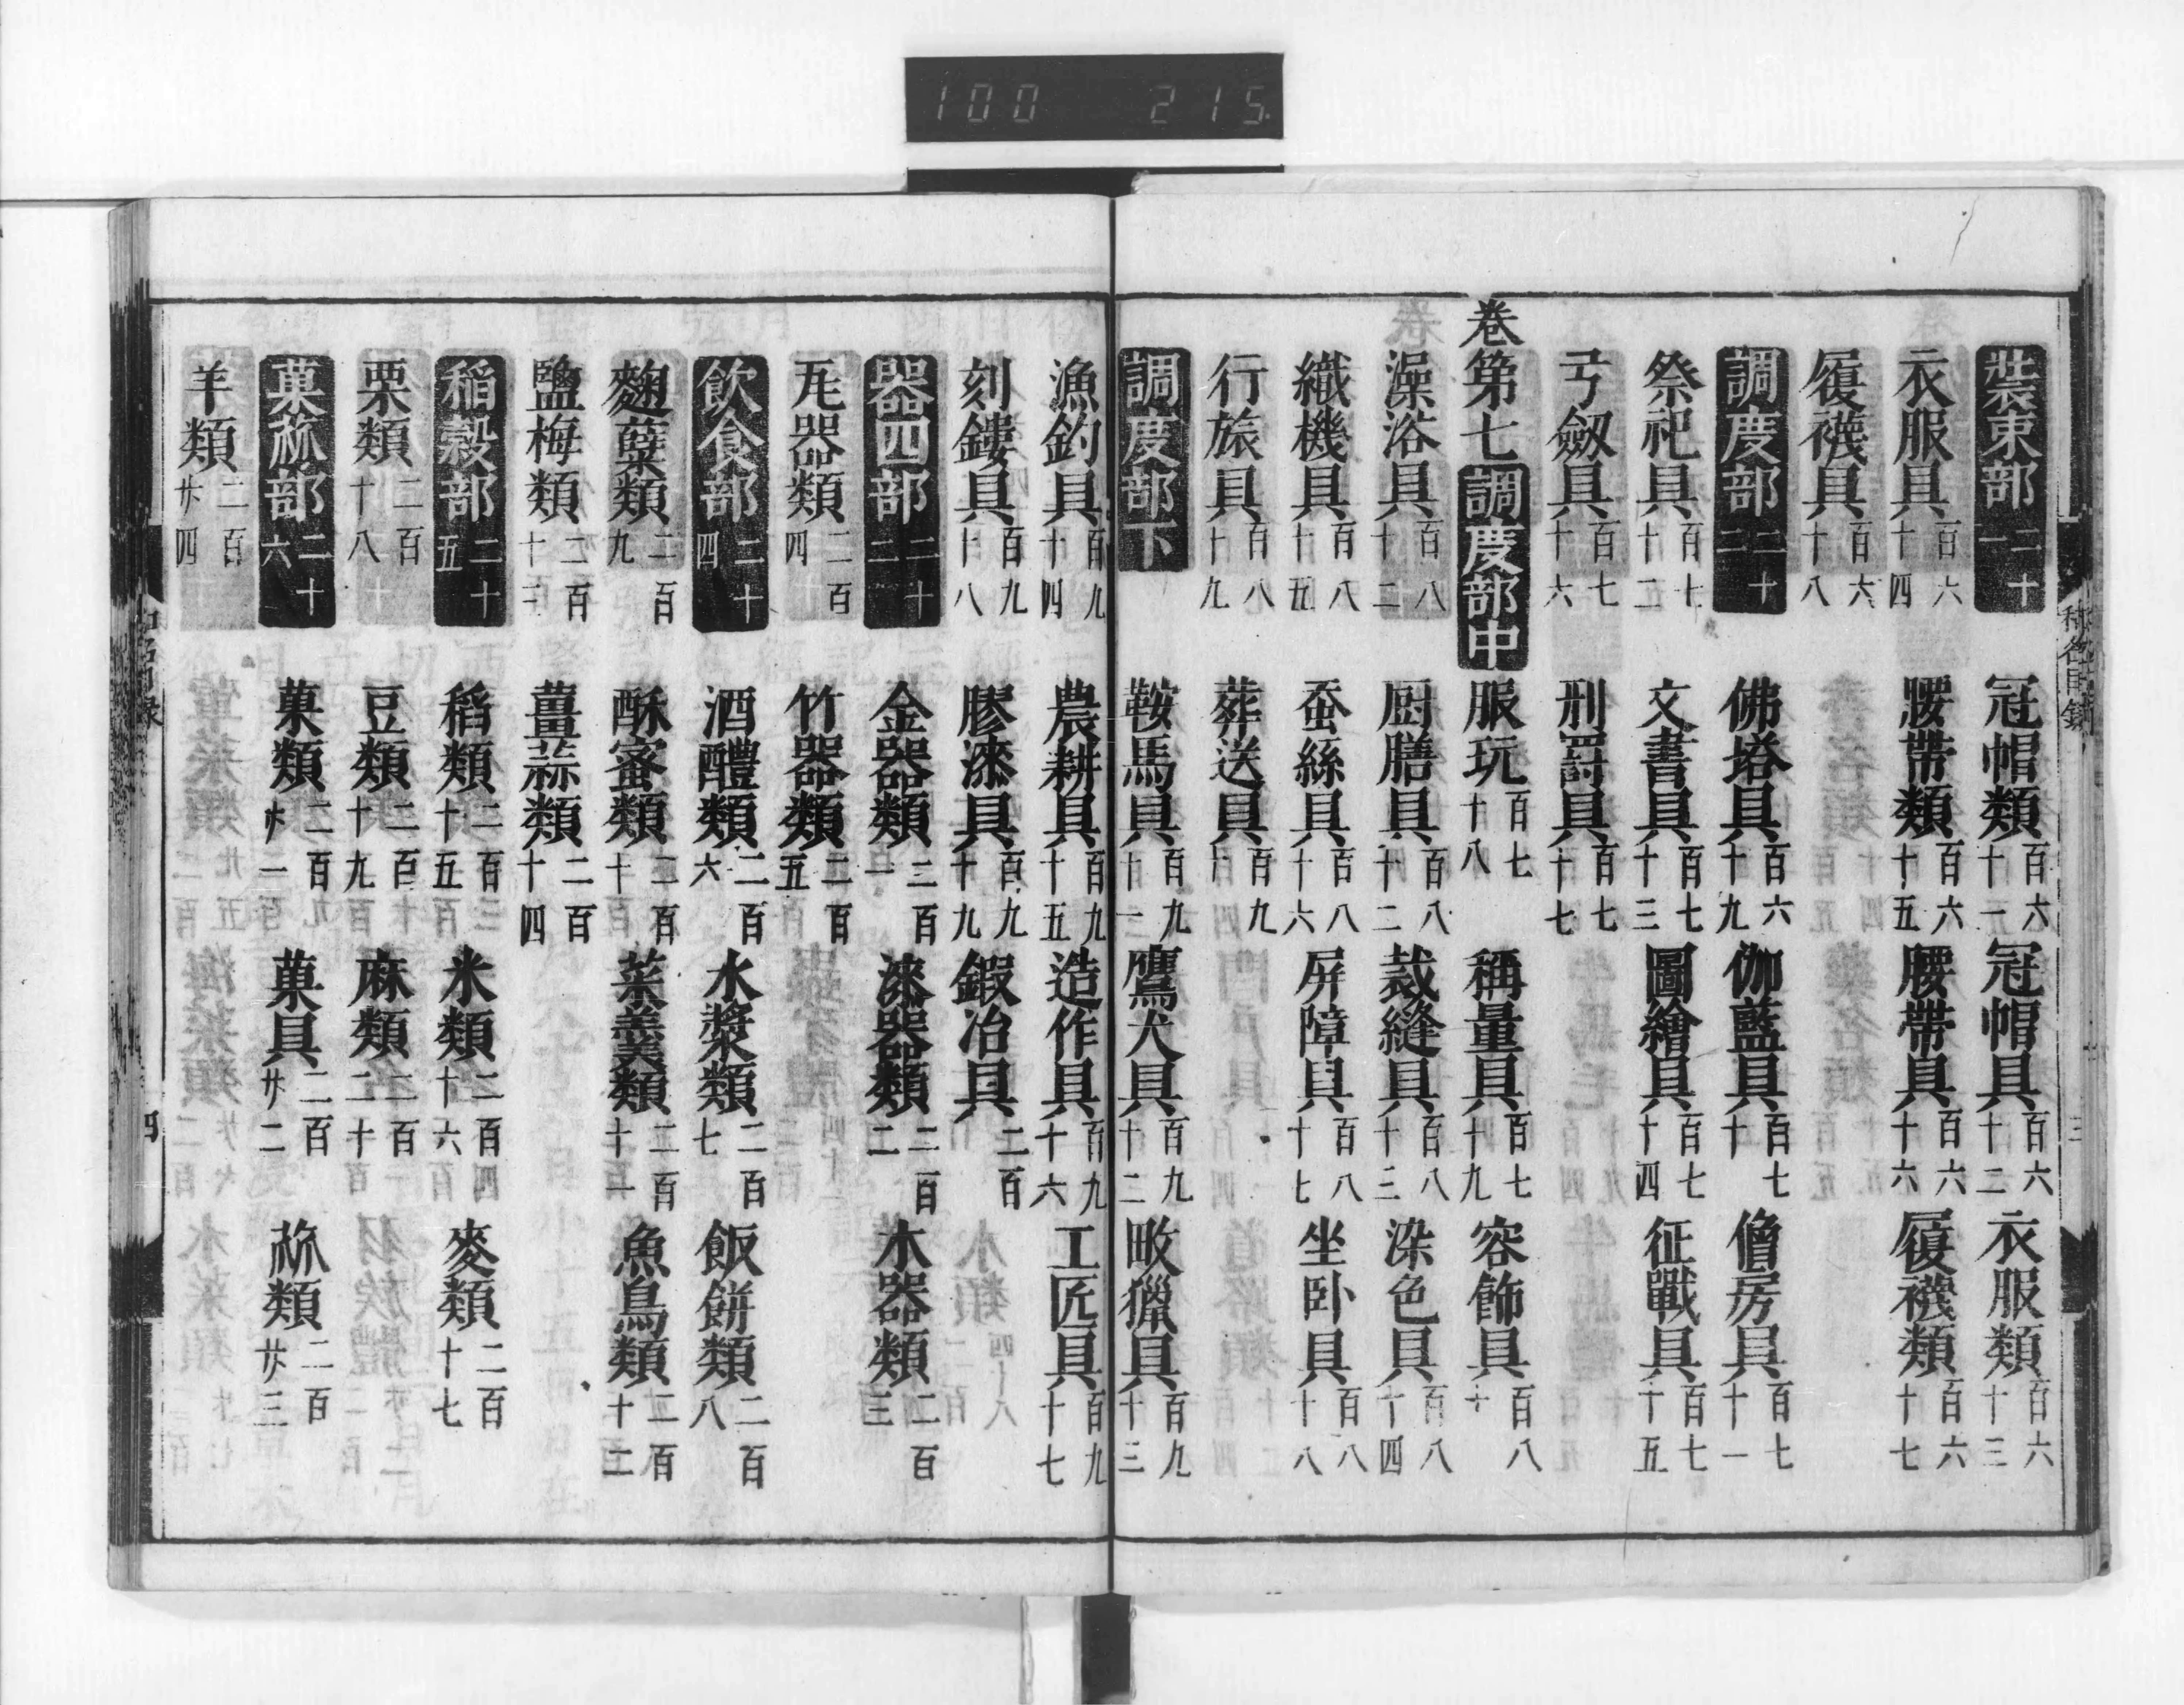 100 215
裝束部二十一 冠帽類百六十一 冠帽具百六十二 衣服類百六十三
衣服具百六十四 腰帶類百六十五 腰帶具百六十六 履襪類百六十七
履襪具百六十八
調度部二十二 佛塔具百六十九 伽藍具百七十 僧房具百七十一
祭祀具百七十二 文書具百七十三 圖繪具百七十四 征戰具百七十五
弓劔具百七十六 刑罸具百七十七
卷第七 調度部中 服玩百七十八 稱量具百七十九 容飾具百八十
澡浴具百八十一 厨膳具百八十二 裁縫具百八十三 染色具百八十四
織機具百八十五 蚕絲具百八十六 屏障具百八十七 坐卧具百八十八
行旅具百八十九 葬送具百九十
調度部下 鞍馬具百九十一 鷹犬具百九十二 畋獵具百九十三
漁釣具百九十四 農耕具百九十五 造作具百九十六 工匠具百九十七
刻鏤具百九十八 膠漆具百九十九 鍜冶具二百
器四部二十二 金器類二百一 漆器類二百二 木器類二百三
瓦器類二百四 竹器類二百五
飲食部二十四 酒醴類二百六 水漿類二百七 飯餅類二百八
麹蘖類二百九 酥蜜類二百十 菜羹類二百十一 魚鳥類二百十二
鹽梅類二百十三 薑蒜類二百十四
稻穀部二十五 稻類二百十五 米類二百十六 麥類二百十七
栗類二百十八 豆類二百十九 麻類二百二十
菓蓏部二十六 菓類二百廿一 菓具二百廿二 蓏類二百廿三
羊類二百廿四
四